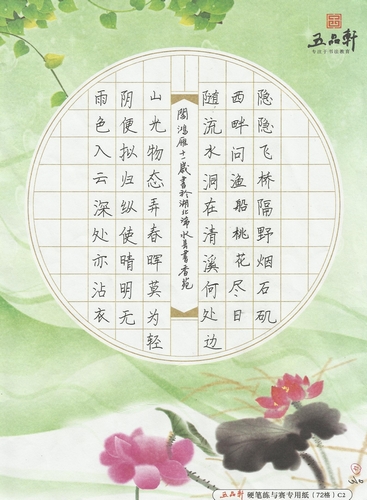 五品軒
专注于书法教育
隐隐飞桥隔野烟石矶
西畔问渔船桃花尽日
随流水洞在清溪何处边
閆鴻雁十一歲書於湖北浠水美書香苑
山光物态弄春晖莫为轻
阴便拟归纵使晴明无
雨色入云深处亦沾衣
五品軒 硬笔练与赛专用纸(72格) C2